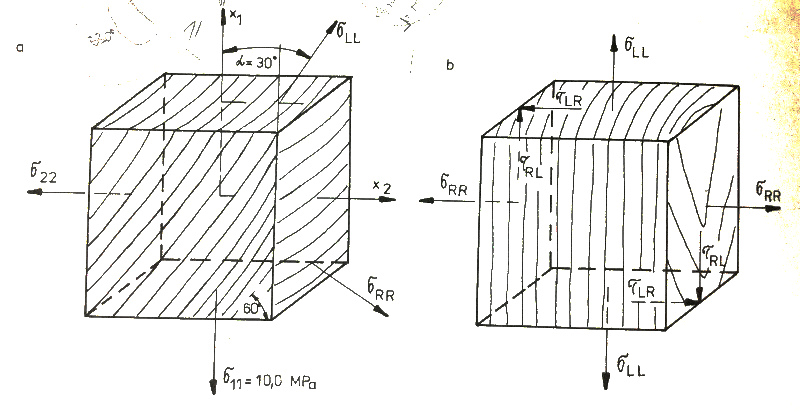 a
x₁
σLL
α=30°
σ22
x₂
σRR
60°
σ11=10,0 MPa
b
σLL
τLR
τRL
σRR
σRR
τRL
τLR
σLL